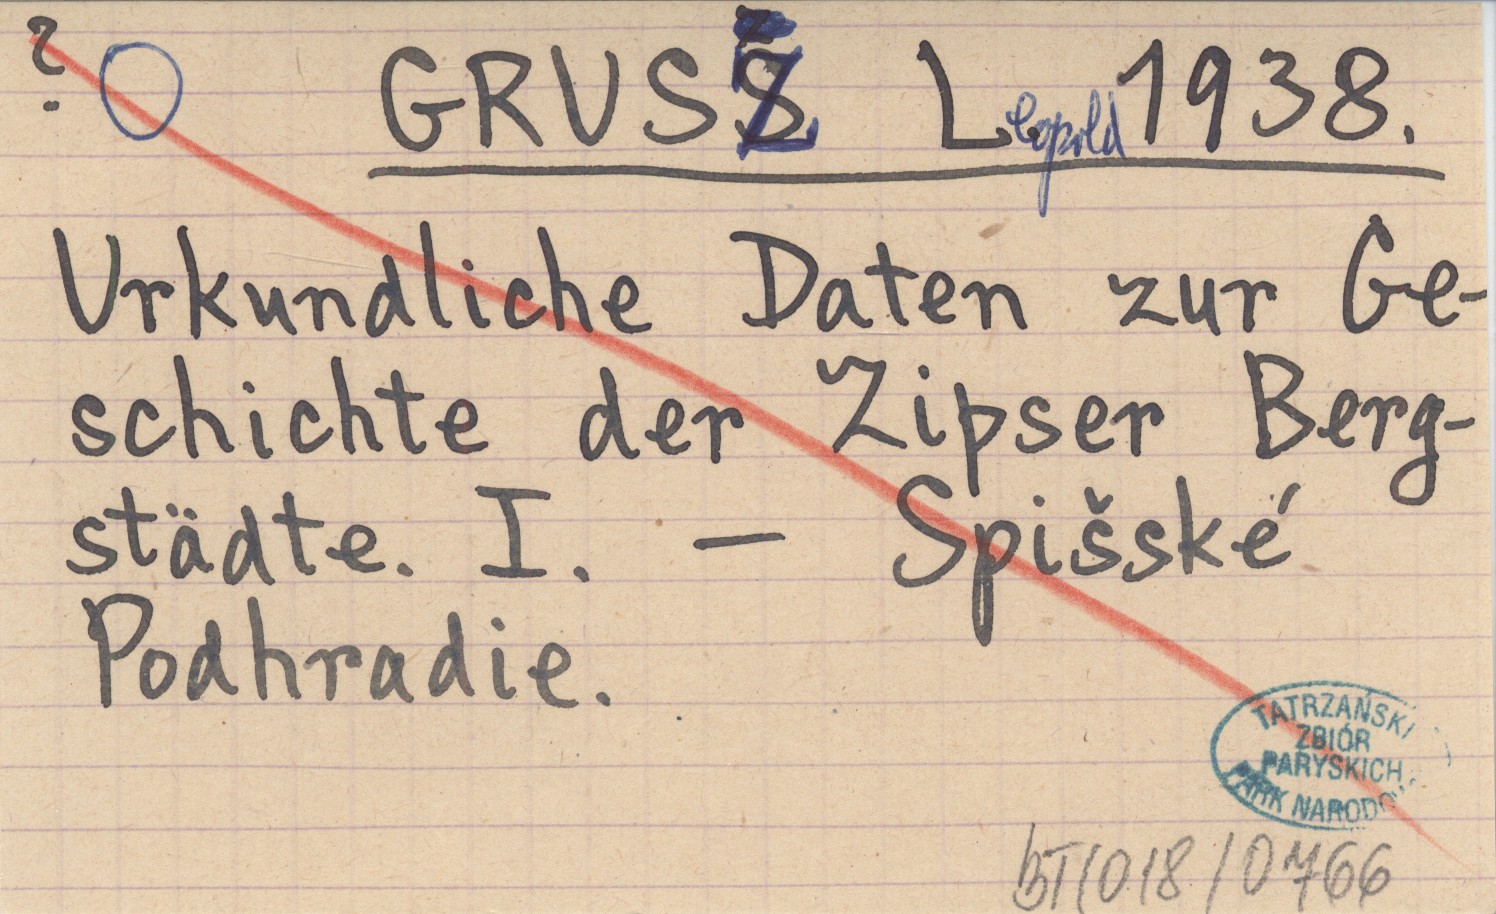 ?
GRUSZ Leopold 1938.
Urkundliche Daten zur Ge-
schichte der Zipser Berg-
städte. I. — Spišské
Podhradie.
TATRZAŃSKI
ZBIÓR
PARYSKICH
PARK NARODOWY
BT/018/0766